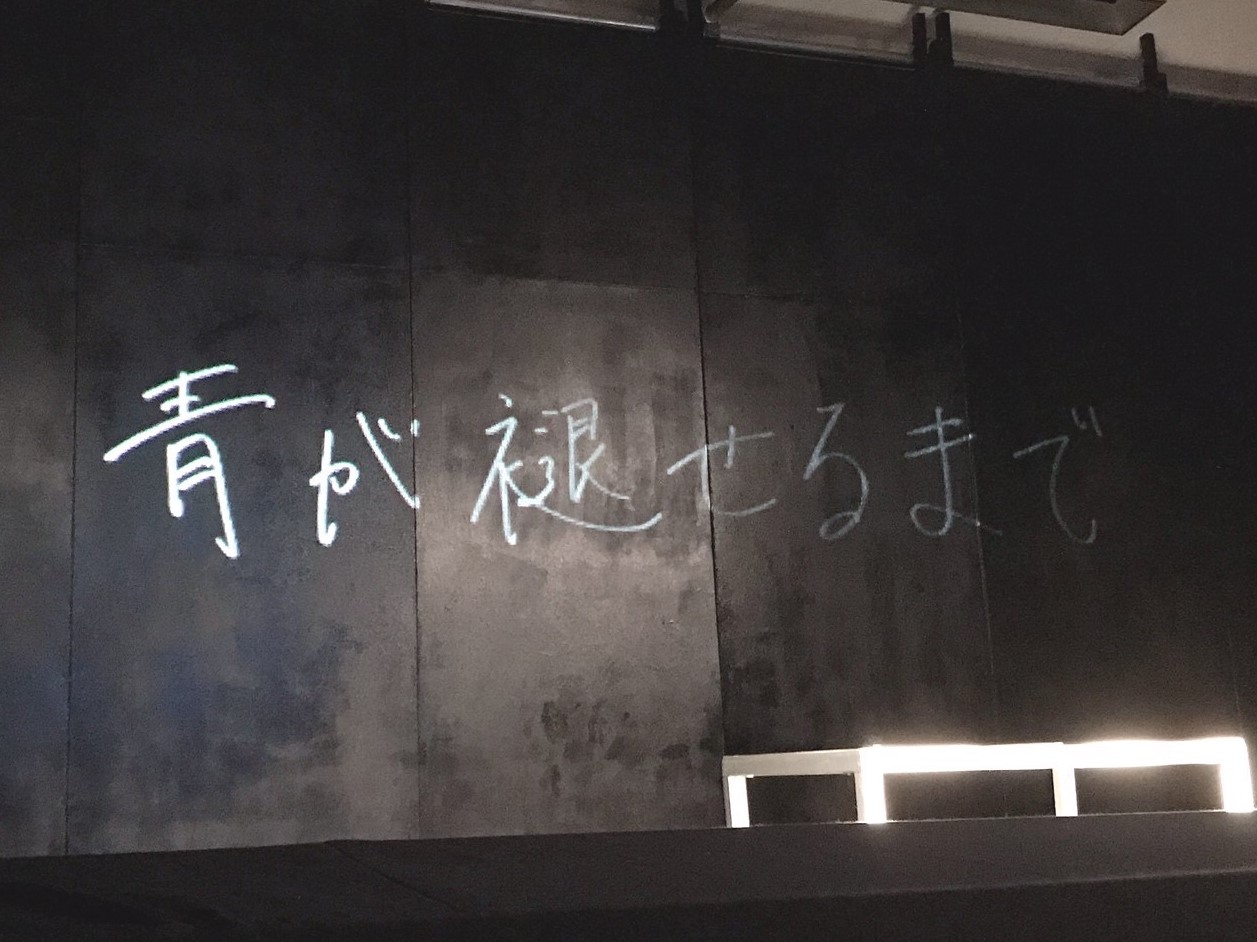 青が褪せるまで